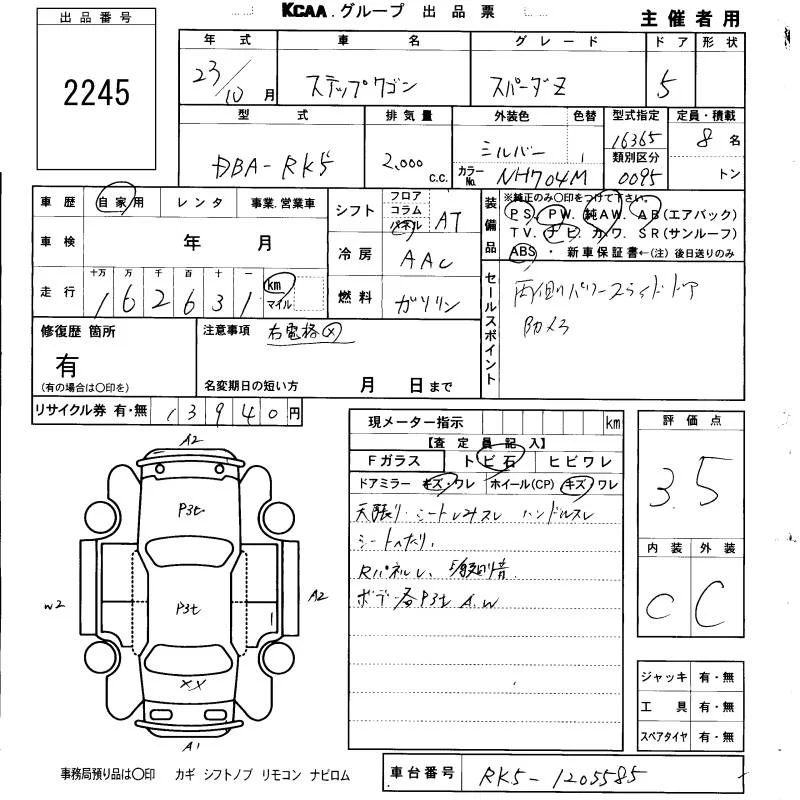 KCAA.グループ 出品票
主催者用
出品番号
2245
年式 車名 グレード ドア 形状
23/10月 ステップワゴン スパーダZ 5
型式 排気量 外装色 色替 型式指定 定員・積載
DBA-RK5 2,000 c.c. シルバー 16365 8名
カラーNo. NH704M 類別区分 0095 トン
車歴 自家用 レンタ 事業.営業車
シフト フロア コラム パネル AT
装備品 ※純正のみ〇印をつけて下さい。
PS. PW. 純AW. AB(エアバック)
TV. ナビ. カワ. SR(サンルーフ)
ABS・新車保証書←(注)後日送りのみ
車検 年 月
冷房 AAC
走行 十万 万 千 百 十 一
162631 km マイル
燃料 ガソリン
セールスポイント
両側パワースライドドア
修復歴 箇所
有
(有の場合は〇印を)
注意事項 右電格
名変期日の短い方 月 日まで
リサイクル券 有・無 13940円
現メーター指示 km
【査定員記入】
Fガラス トビ石 ヒビワレ
ドアミラー キズ・ワレ ホイール(CP) キズ ワレ
天張り、シート ハンドルスレ
シートへたり、
ボデー各P3t A.W
評価点
3.5
内装 外装
C C
A2
P3t
P3t
W2
A2
XX
A1
ジャッキ 有・無
工具 有・無
スペアタイヤ 有・無
事務局預り品は〇印 カギ シフトノブ リモコン ナビロム
車台番号 RK5-1205585